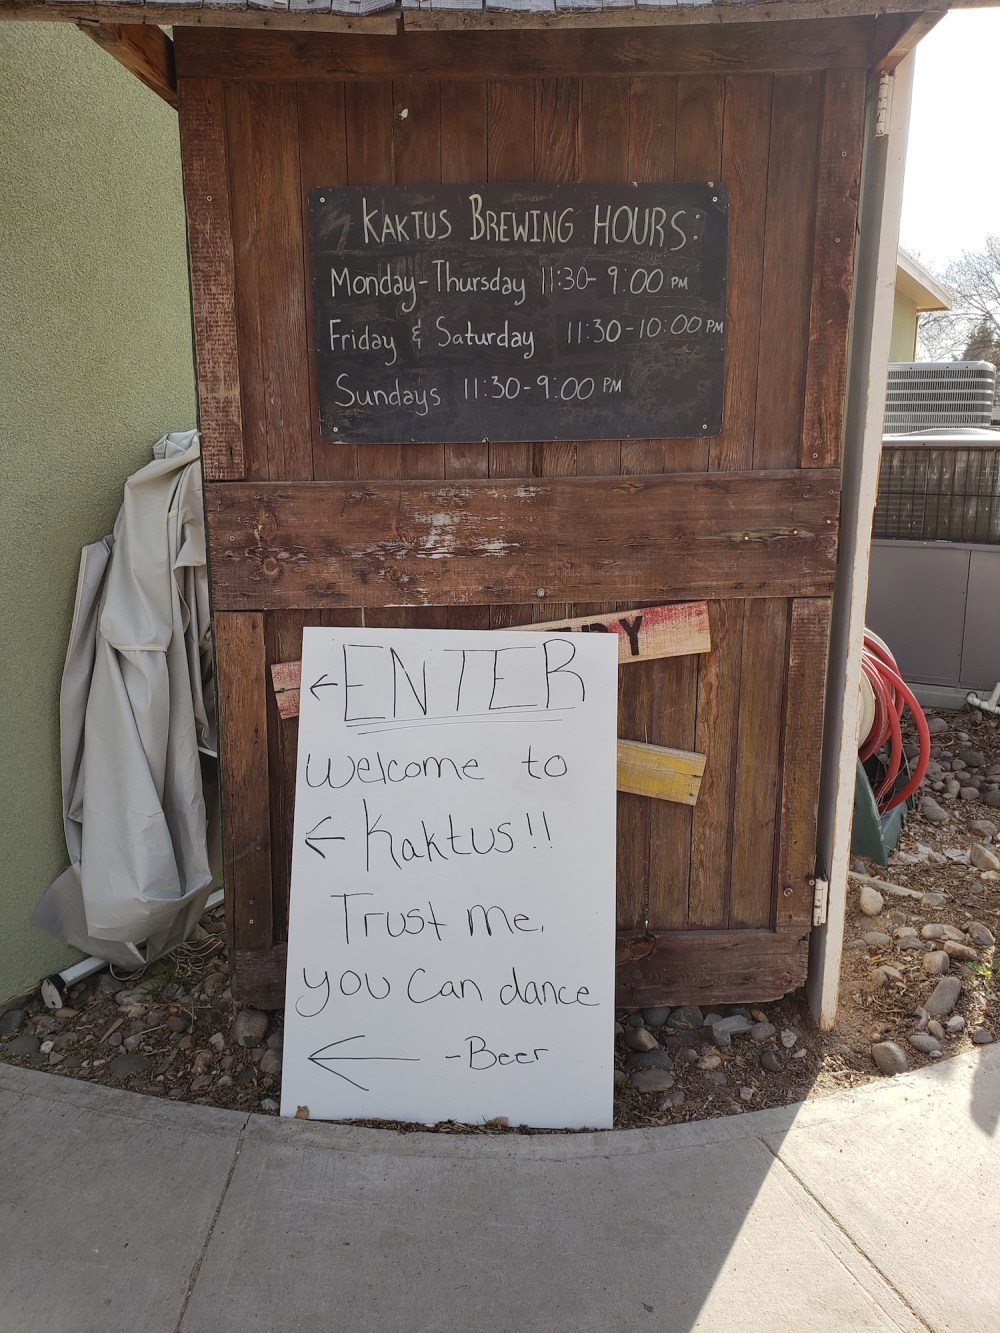 KAKTUS BREWING HOURS:
Monday-Thursday 11:30-9:00 PM
Friday & Saturday 11:30-10:00 PM
Sundays 11:30-9:00 PM
← ENTER
Welcome to
← Kaktus!!
Trust me,
you can dance
← -Beer